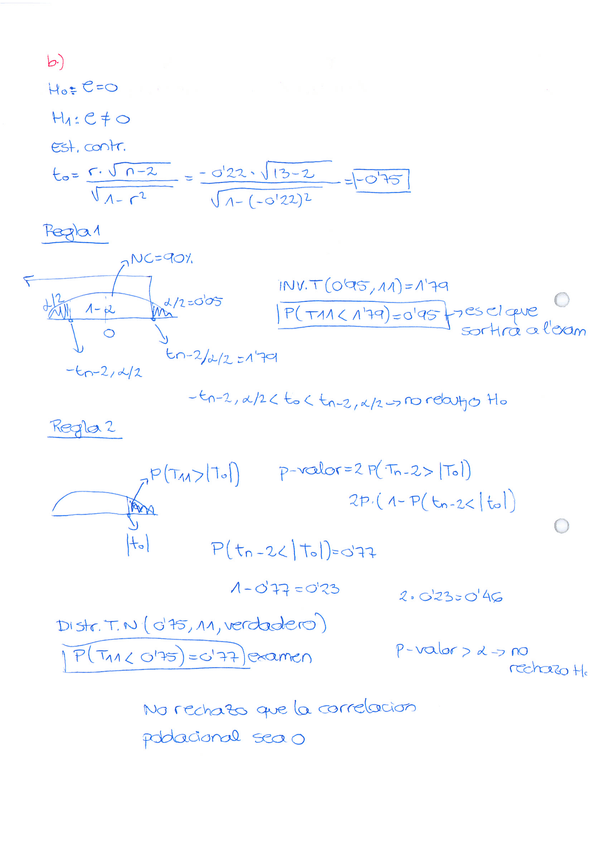 b)
H0: ρ=0
H1: ρ≠0
est. contr.
t0 = r·√n-2 / √1-r² = -0'22·√13-2 / √1-(-0'22)² = -0'75
Regla 1
NC=90%
α/2 1-α α/2=0'05
0
-tn-2, α/2
tn-2/α/2=1'79
INV.T(0'95, 11)=1'79
P(T11<1'79)=0'95 → es el que
sortirà a l'exam
-tn-2, α/2 < t0 < tn-2, α/2 → no rebutjo H0
Regla 2
P(T11>|T0|)
|t0|
p-valor=2P(Tn-2>|T0|)
2P·(1-P(tn-2<|t0|)
P(tn-2<|T0|)=0'77
1-0'77=0'23
2·0'23=0'46
Distr.T.N(0'75, 11, verdadero)
P(T11<0'75)=0'77) examen
p-valor > α → no
rechazo H0
No rechazo que la correlacion
poblacional sea 0